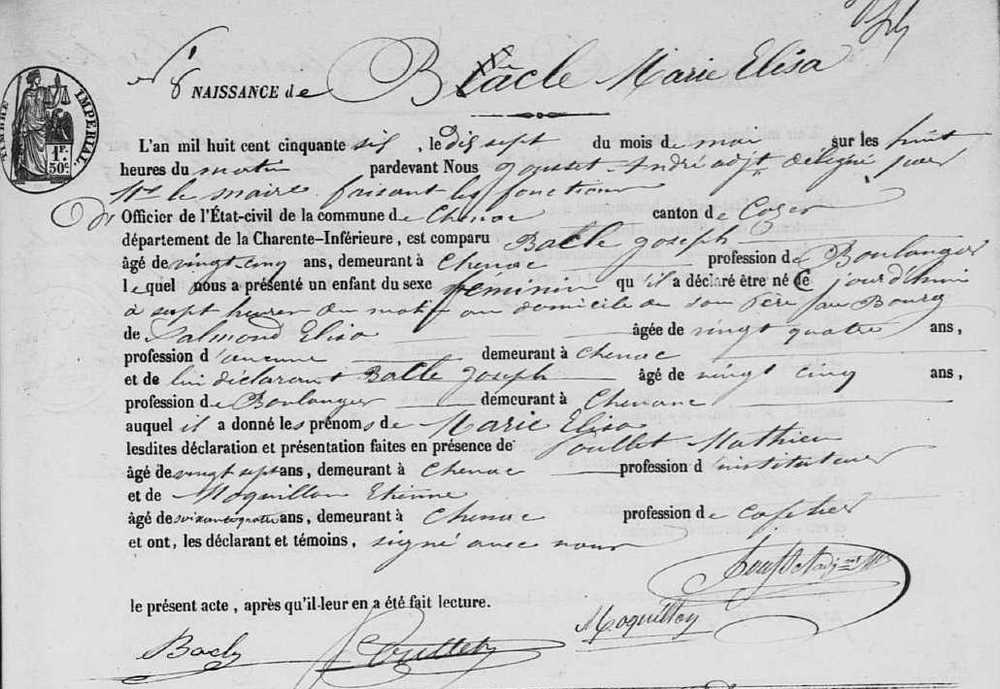 N° 8 NAISSANCE de Bâcle Marie Elisa
TIMBRE IMPERIAL
1F. 50c.
L'an mil huit cent cinquante six, le dix sept du mois de mai sur les huit
heures du matin pardevant Nous Gousset André adjt délégué par
Mr le maire faisant les fonctions
D' Officier de l'État-civil de la commune de Chenac canton de Cozes
département de la Charente-Inférieure, est comparu Bacle Joseph
âgé de vingt cinq ans, demeurant à Chenac profession de Boulanger
lequel nous a présenté un enfant du sexe feminin qu'il a déclaré être né Ce jourd'hui
à sept heures du matin au domicile de son père au Bourg
de Salmond Elisa âgée de vingt quatre ans,
profession d'aucune demeurant à Chenac
et de lui déclarant Bacle Joseph âgé de vingt cinq ans,
profession de Boulanger demeurant à Chenac
auquel il a donné les prénoms de Marie Elisa
lesdites déclaration et présentation faites en présence de Mathieu
âgé de vingt sept ans, demeurant à Chenac profession d'instituteur
et de Moquillon Etienne
âgé de soixante quatre ans, demeurant à Chenac profession de
et ont, les déclarant et témoins, signé avec nous
le présent acte, après qu'il leur en a été fait lecture.
Bacle